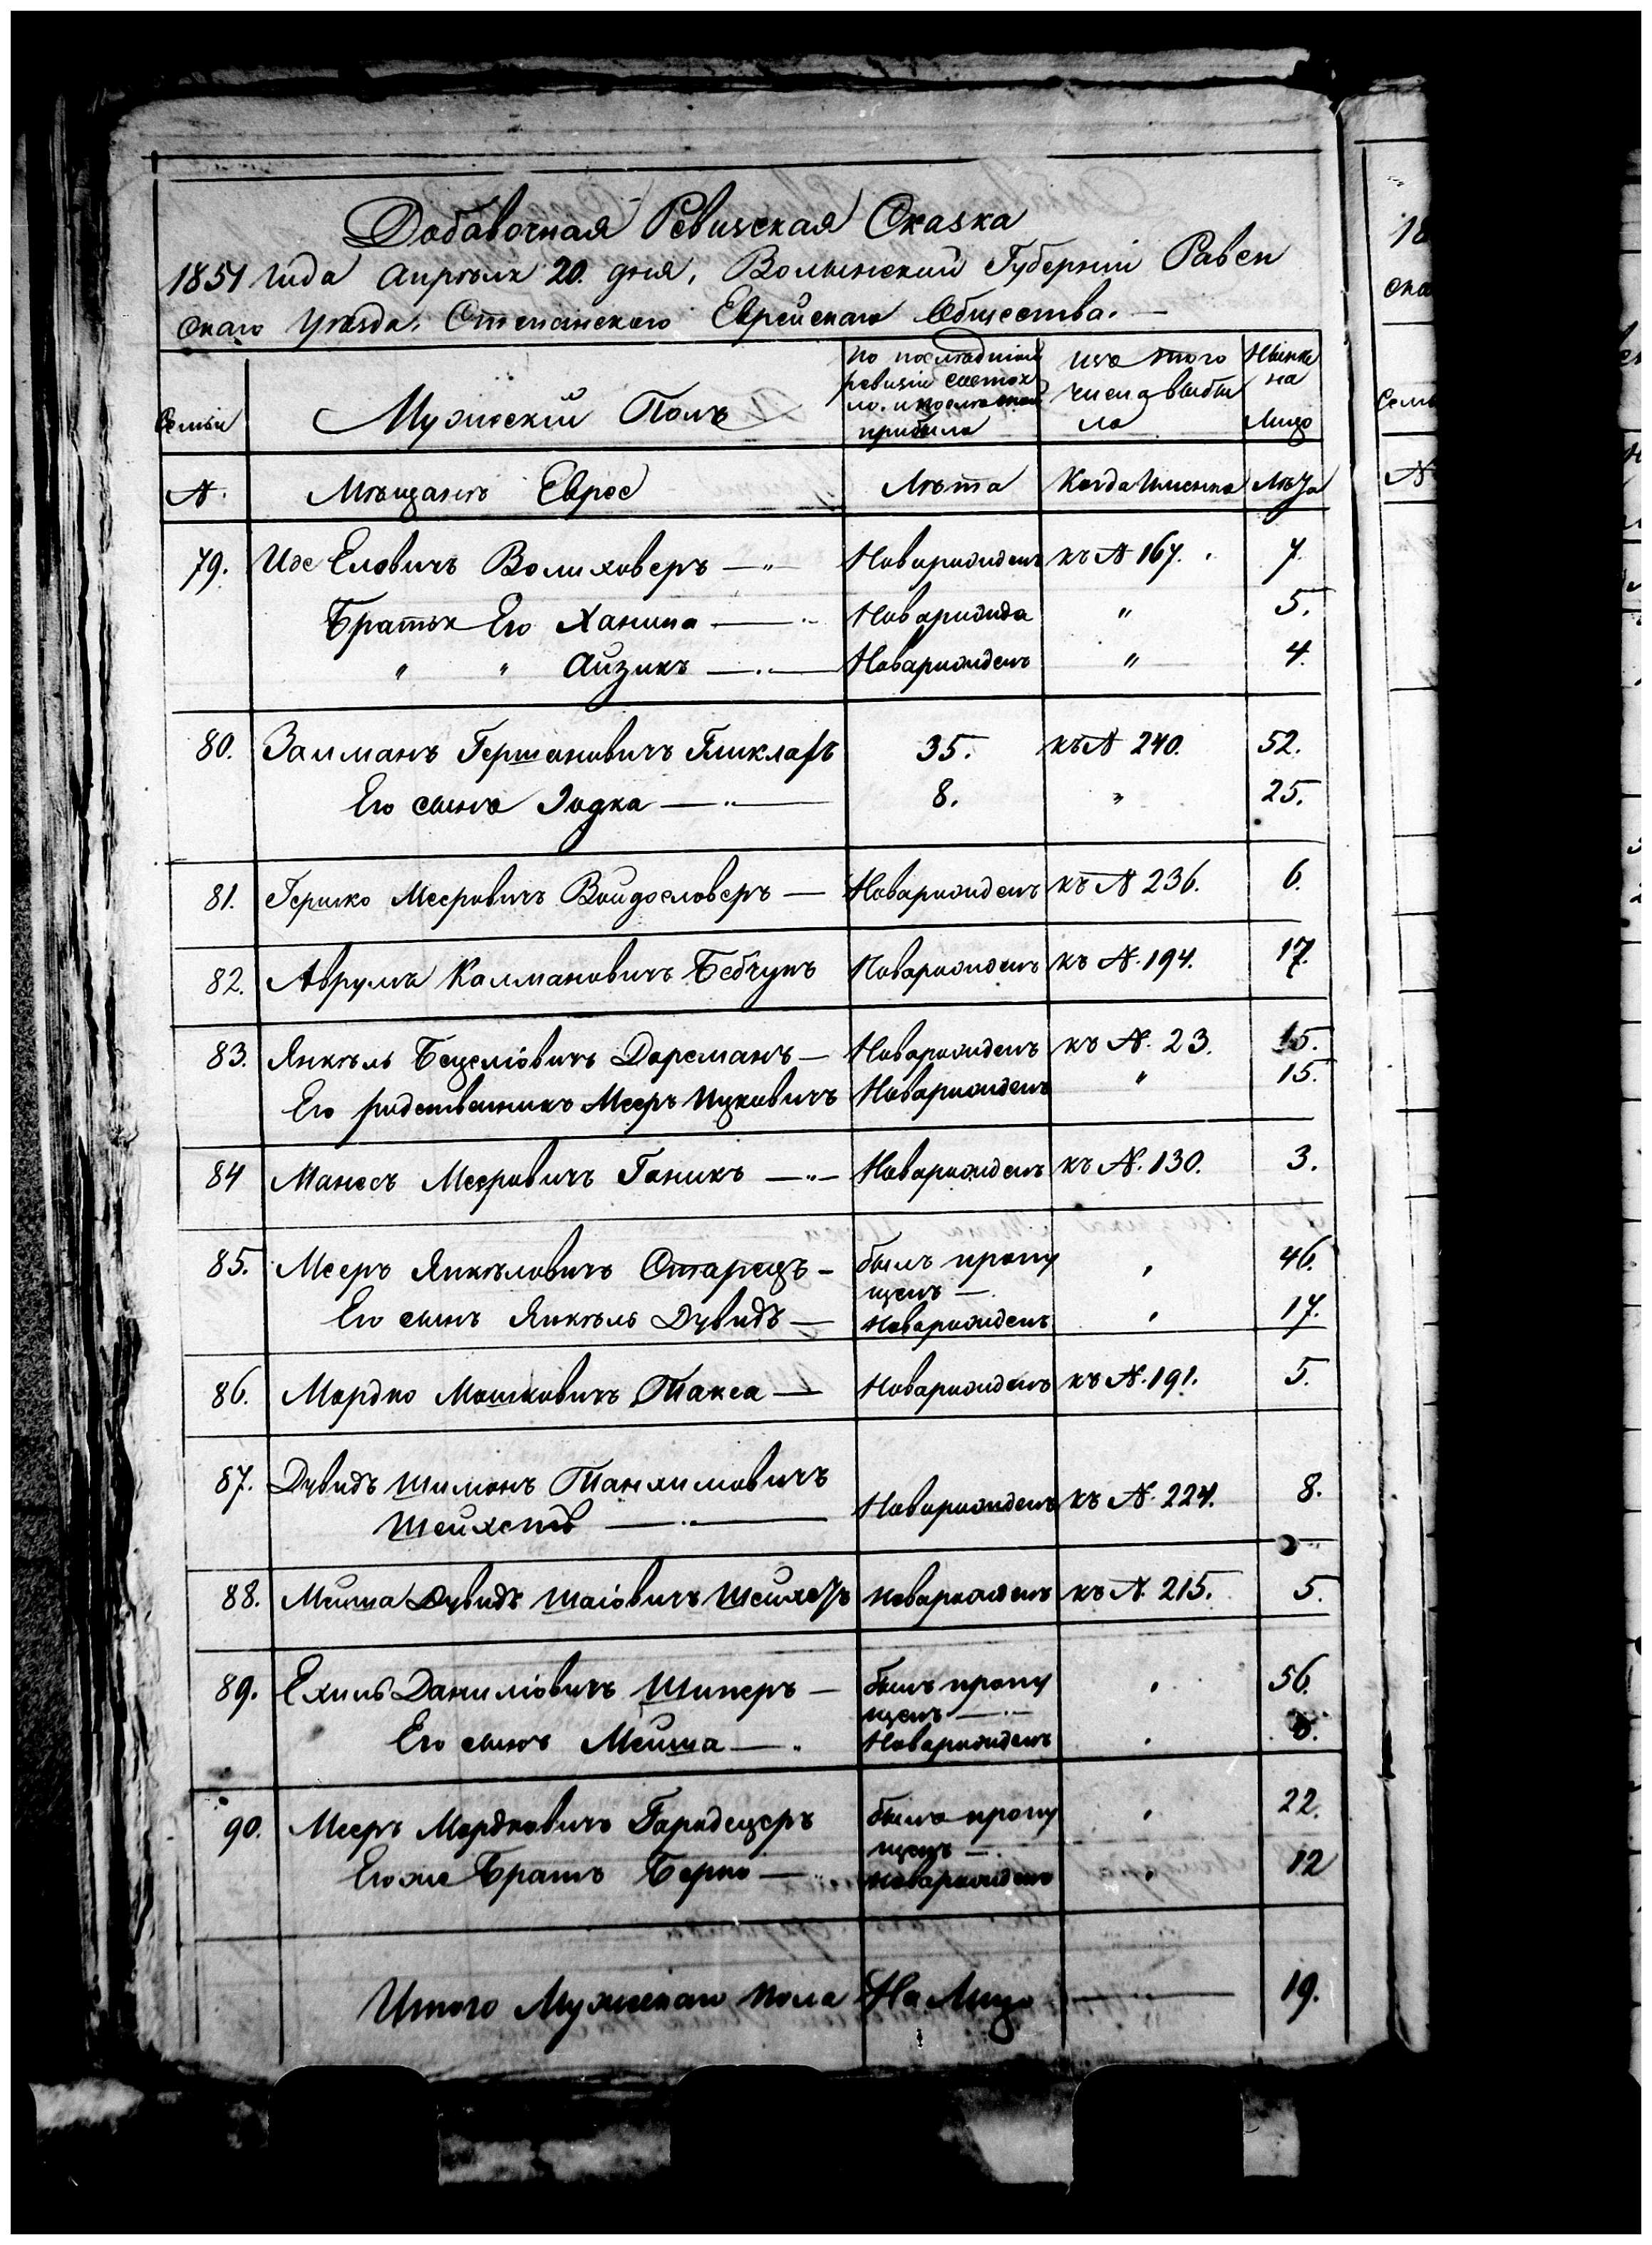 Добавочная Ревизская Сказка
1851 года апрѣля 20. дня, Волынской Губерніи Равен
скаго Уѣзда. Степанскаго Еврейскаго Общества. —
Семьи
Мужескій Полъ
по послѣдней
ревизіи состоя
ло. и послѣ оной
прибыло
изъ того
числа выбы
ло
Нынѣ
на
Лицо
№.
Мѣщанъ Еврее
Лѣта
Когда Именно
Лѣта
79. Иос Еловичъ Волиховеръ — " — Новарожденъ къ № 167. 7.
Братья Его Ханина — Новарожда " 5.
" " Айзикъ — Новарожденъ " 4.
80. Залманъ Гершоновичъ Гликларъ 35. къ № 240. 52.
Его сынъ Зодка — " — 8. " 25.
81. Гершко Мееровичъ Войдословеръ — Новарожденъ къ № 236. 6.
82. Аврумъ Калмановичъ Бебчукъ Новарожденъ къ №. 194. 17.
83. Янкѣль Бецеліовичъ Дорсманъ — Новарожденъ къ №. 23. 15.
Его родственникъ Мееръ Ицковичъ Новарожденъ " 15.
84 Манесъ Мееровичъ Ганикъ — " — Новарожденъ къ №. 130. 3.
85. Мееръ Янкѣловичъ Старецъ — былъ пропу " 46.
щенъ —
Его сынъ Янкѣль Дувидъ — Новарожденъ " 17.
86. Мордко Мошковичъ Такса — Новарожденъ къ №. 191. 5.
87. Дувидъ Шимонъ Танхимовичъ
Шейхетъ — " — Новарожденъ къ №. 224. 8.
88. Мейша Дувидъ Шаіовичъ Шейхетъ Новарожденъ къ №. 215. 5.
89. Ехилъ Даниліовичъ Шиперъ — былъ пропу " 56.
щенъ —
Его сынъ Мейша — Новарожденъ "
90. Мееръ Мордковичъ Городецеръ былъ пропу " 22.
щенъ —
Его же Братъ Берко — Новарожденъ " 12
Итого Мужескаго пола На Лицо — 19.